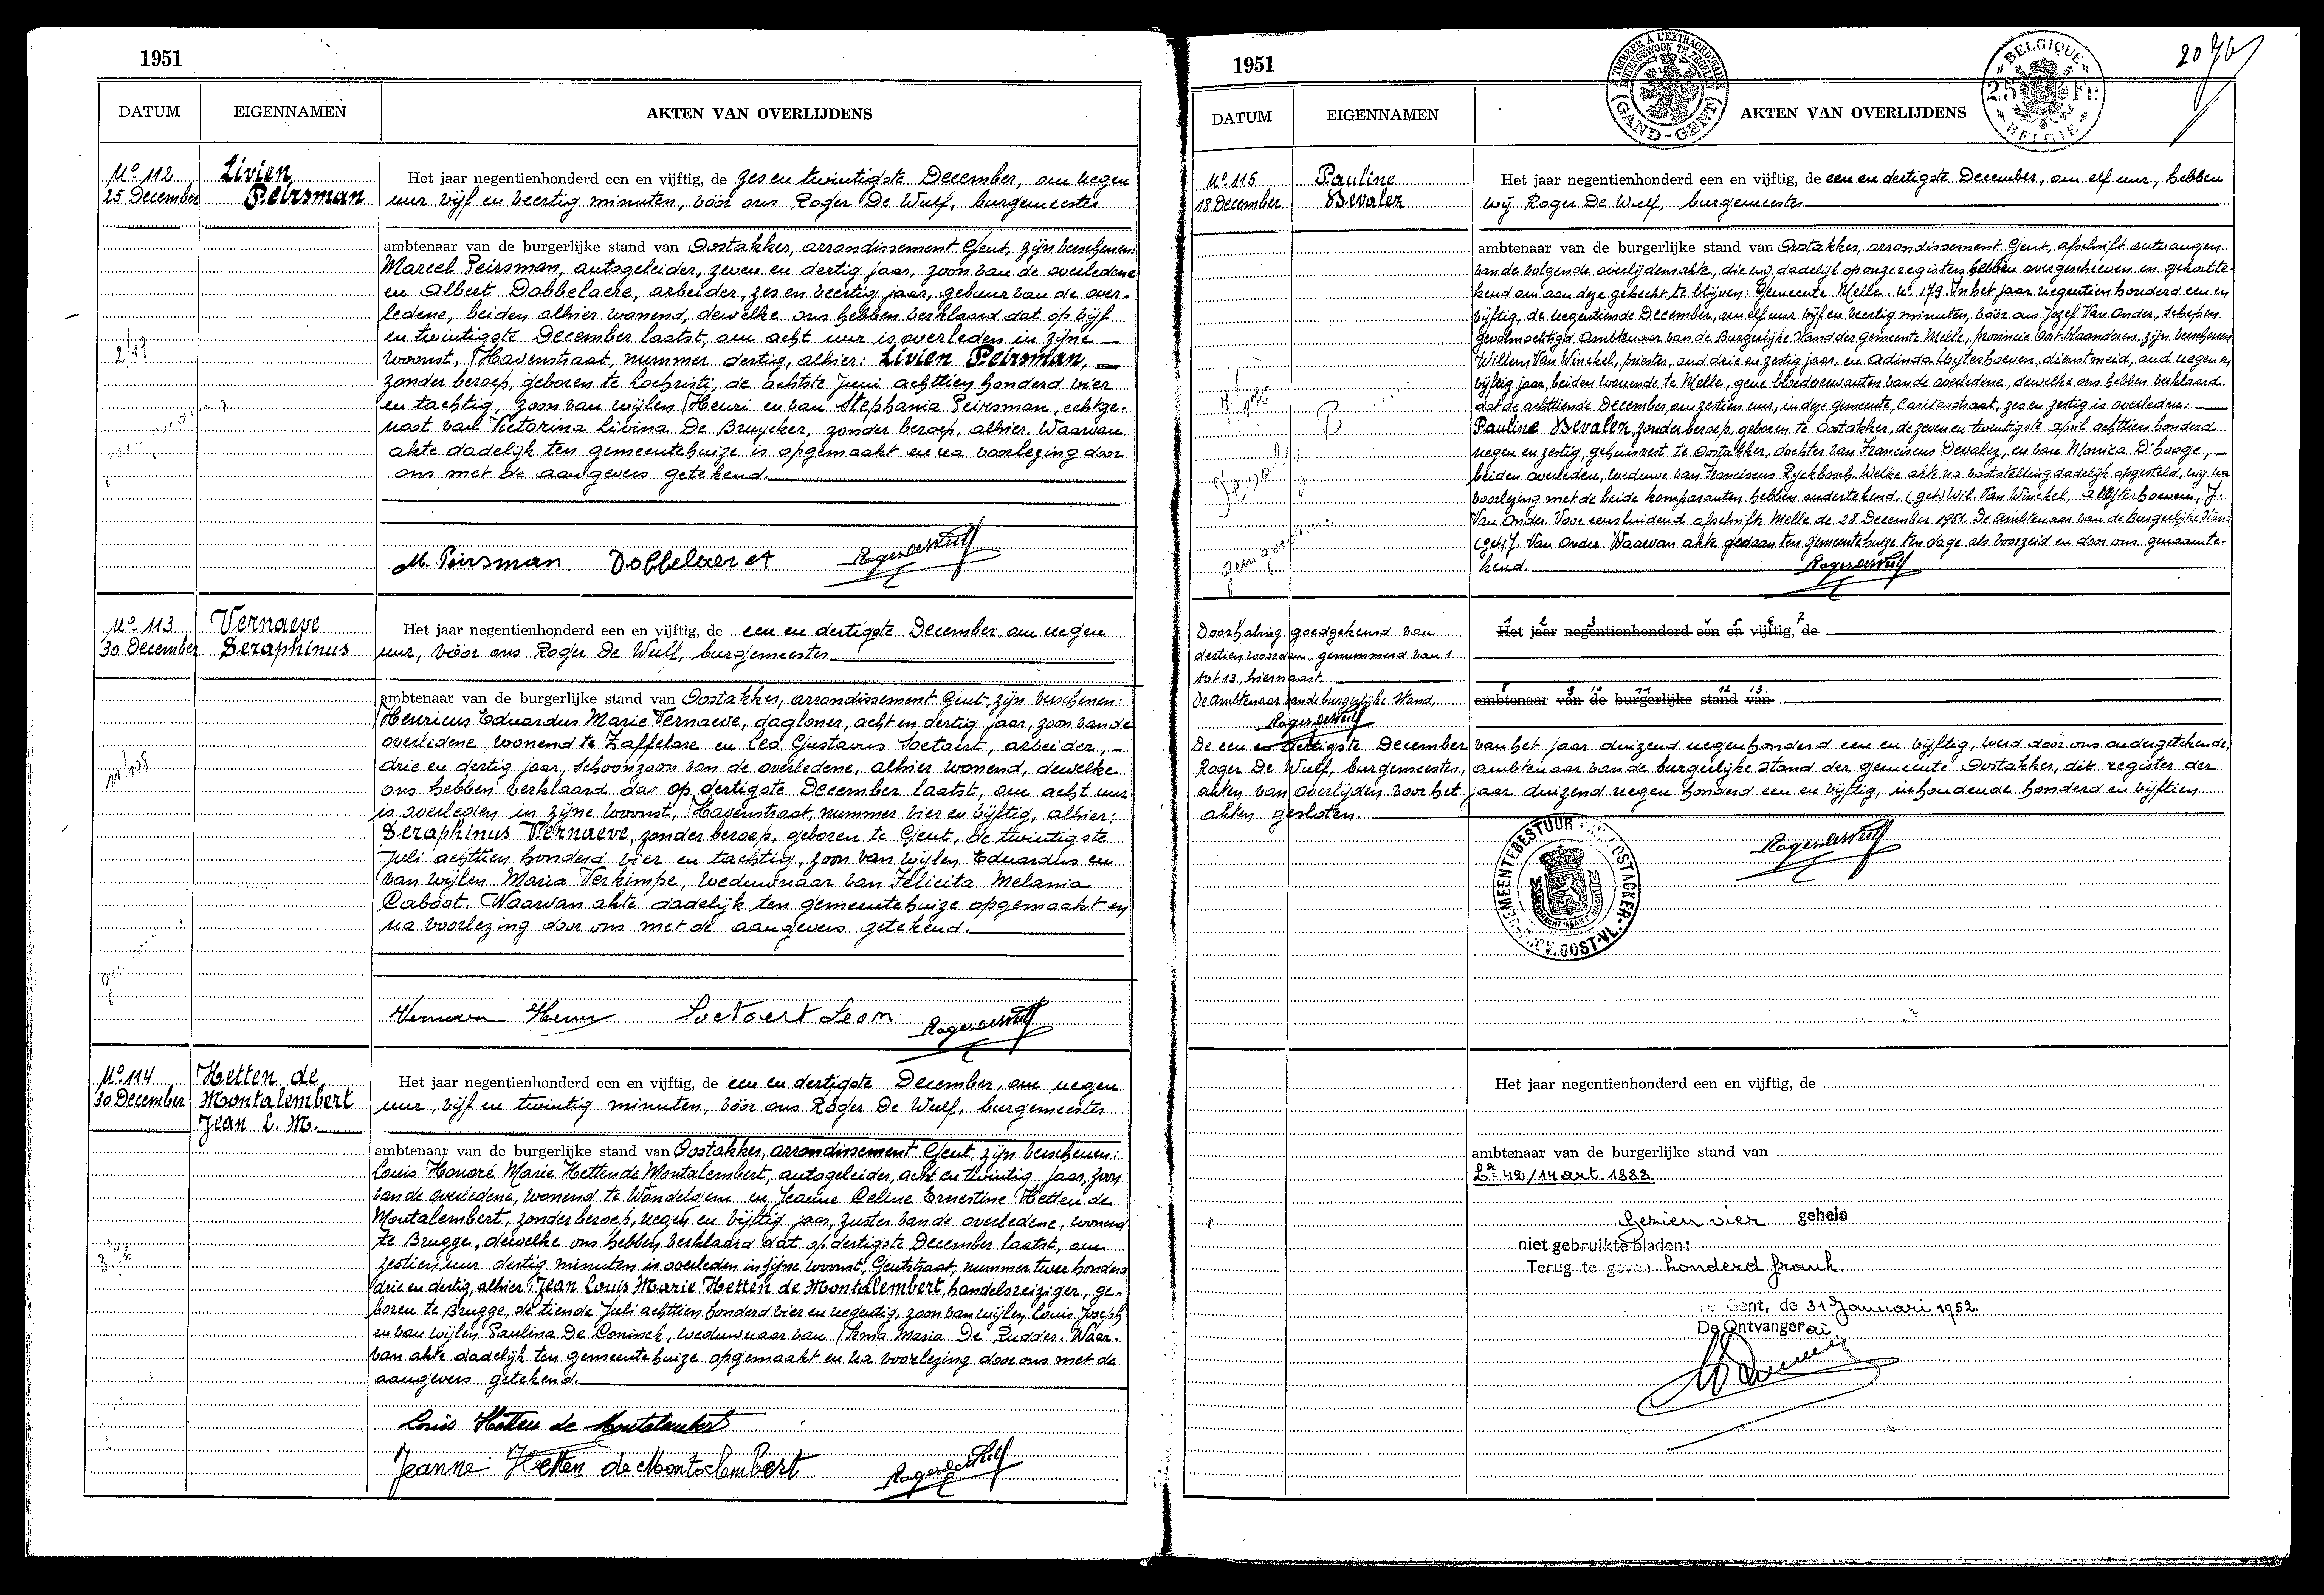 1951
DATUM EIGENNAMEN AKTEN VAN OVERLIJDENS
No 112 Livien
25 December Peirsman
Het jaar negentienhonderd een en vijftig, de zes en twintigste December, om negen
uur vijf en veertig minuten, vóór ons Roger De Wulf, burgemeester
ambtenaar van de burgerlijke stand van Oostakker, arrondissement Gent, zijn verschenen:
Marcel Peirsman, autogeleider, zeven en dertig jaar, zoon van de overledene
en Albert Dobbelaere, arbeider, zes en veertig jaar, gebuur van de over-
ledene, beiden alhier wonend, dewelke ons hebben verklaard dat op vijf
en twintigste December laatst, om acht uur is overleden in zijne
woonst, Havenstraat, nummer dertig, alhier: Livien Peirsman,
zonder beroep, geboren te Lochristi, de achtste Juni achttien honderd vier
en tachtig, zoon van wijlen Henri en van Stephania Peirsman, echtge-
noot van Victorina Livina De Bruycker, zonder beroep, alhier. Waarvan
akte dadelijk ten gemeentehuize is opgemaakt en na voorlezing door
ons met de aangevers getekend.
M. Peirsman Dobbelaere A Roger De Wulf
No 113 Vernaeve
30 December Seraphinus
Het jaar negentienhonderd een en vijftig, de een en dertigste December, om negen
uur, vóór ons Roger De Wulf, burgemeester
ambtenaar van de burgerlijke stand van Oostakker, arrondissement Gent, zijn verschenen:
Henricus Eduardus Marie Vernaeve, dagloner, acht en dertig jaar, zoon van de
overledene, wonend te Zaffelare en Leo Gustavus Soetaert, arbeider,
drie en dertig jaar, schoonzoon van de overledene, alhier wonend, dewelke
ons hebben verklaard dat op dertigste December laatst, om acht uur
is overleden in zijne woonst, Havenstraat, nummer vier en vijftig, alhier:
Seraphinus Vernaeve, zonder beroep, geboren te Gent, de twintigste
Juli achttien honderd vier en tachtig, zoon van wijlen Eduardus en
van wijlen Maria Verkimpe, weduwnaar van Felicita Melania
Caboot. Waarvan akte dadelijk ten gemeentehuize opgemaakt en
na voorlezing door ons met de aangevers getekend.
Soetaert Leon Roger De Wulf
No 114 Hetten de
30 December Montalembert
Jean L. M.
Het jaar negentienhonderd een en vijftig, de een en dertigste December, om negen
uur, vijf en twintig minuten, vóór ons Roger De Wulf, burgemeester
ambtenaar van de burgerlijke stand van Oostakker, arrondissement Gent, zijn verschenen:
Louis Honoré Marie Hetten de Montalembert, autogeleider, acht en twintig jaar, zoon
van de overledene, wonend te Wondelgem en Jeanne Celine Ernestine Hetten de
Montalembert, zonder beroep, negen en vijftig jaar, zuster van de overledene, wonend
te Brugge, dewelke ons hebben verklaard dat op dertigste December laatst, om
zestien uur dertig minuten is overleden in zijne woonst, Gentstraat, nummer twee honderd
drie en dertig, alhier: Jean Louis Marie Hetten de Montalembert, handelsreiziger, ge-
boren te Brugge, de tiende Juli achttien honderd vier en negentig, zoon van wijlen Louis Joseph
en van wijlen Paulina De Coninck, weduwnaar van Irma Maria De Rudder. Waar-
van akte dadelijk ten gemeentehuize opgemaakt en na voorlezing door ons met de
aangevers getekend.
Louis Hetten de Montalembert
Jeanne Hetten de Montalembert Roger De Wulf
1951
TIMBRER À L'EXTRAORDINAIRE
BUITENGEWOON TE ZEGELEN
(GAND-GENT)
BELGIQUE
25 Fr.
BELGIE
DATUM EIGENNAMEN AKTEN VAN OVERLIJDENS
No 115 Pauline
18 December Devalez
Het jaar negentienhonderd een en vijftig, de een en dertigste December, om elf uur, hebben
wij Roger De Wulf, burgemeester
ambtenaar van de burgerlijke stand van Oostakker, arrondissement Gent, afschrift ontvangen
van de volgende overlijdensakte, die wij dadelijk op onze registers hebben overgeschreven en gekortte-
kend om aan deze gehecht te blijven: Gemeente Melle. No 179. In het jaar negentien honderd een en
vijftig, de negentiende December, om elf uur vijf en veertig minuten, vóór ons Jozef Van Onder, Schepen
gevolmachtigd Ambtenaar van de Burgerlijke Stand der gemeente Melle, provincie Oost-Vlaanderen, zijn verschenen
Willem Van Winckel, priester, oud drie en zestig jaar en Adinda Wijterhoeven, dienstmeid, oud negen en
vijftig jaar, beiden wonende te Melle, gene bloedverwanten van de overledene, dewelke ons hebben verklaard
dat de achttiende December, om zestien uur, in deze gemeente, Caritasstraat, zes en zestig is overleden:
Pauline Devalez, zonder beroep, geboren te Oostakker, de zeven en twintigste April achttien honderd
negen en zestig, gehuisvest te Oostakker, dochter van Franciscus Devalez, en van Monica D'hooge,
beiden overleden, weduwe van Franciscus Ryckbosch. Welke akte na vaststelling dadelijk opgesteld, wij na
voorlezing met de beide komparanten hebben ondertekend. (get.) Wil. Van Winckel, A. Wijterhoeven, J.
Van Onder. Voor eensluidend afschrift Melle de 28 December 1951. De Ambtenaar van de Burgerlijke Stand
(get.) J. Van Onder. Waarvan akte gedaan ten gemeentehuize ten dage als voorzeid en door ons genaamte-
kend. Roger De Wulf
Doorhaling goedgekeurd van
dertien woorden, genummerd van 1
tot 13, hiernaast.
De Ambtenaar van de burgerlijke Stand,
Roger De Wulf
1 2 3 4 5 6 7
Het jaar negentienhonderd een en vijftig, de
8 9 10 11 12 13
ambtenaar van de burgerlijke stand van
De een en dertigste December van het jaar duizend negenhonderd een en vijftig, werd door ons ondergetekende,
Roger De Wulf, burgemeester, ambtenaar van de burgerlijke stand der gemeente Oostakker, dit register der
akten van overlijden voor het jaar duizend negen honderd een en vijftig, inhoudende honderd en vijftien
akten gesloten.
Roger De Wulf
GEMEENTEBESTUUR VAN OOSTACKER
PROV. OOST-VL.
Het jaar negentienhonderd een en vijftig, de
ambtenaar van de burgerlijke stand van
Gezien vier gehele
niet gebruikte bladen:
Terug te geven honderd frank.
Te Gent, de 31 Januari 1952.
De Ontvanger ai